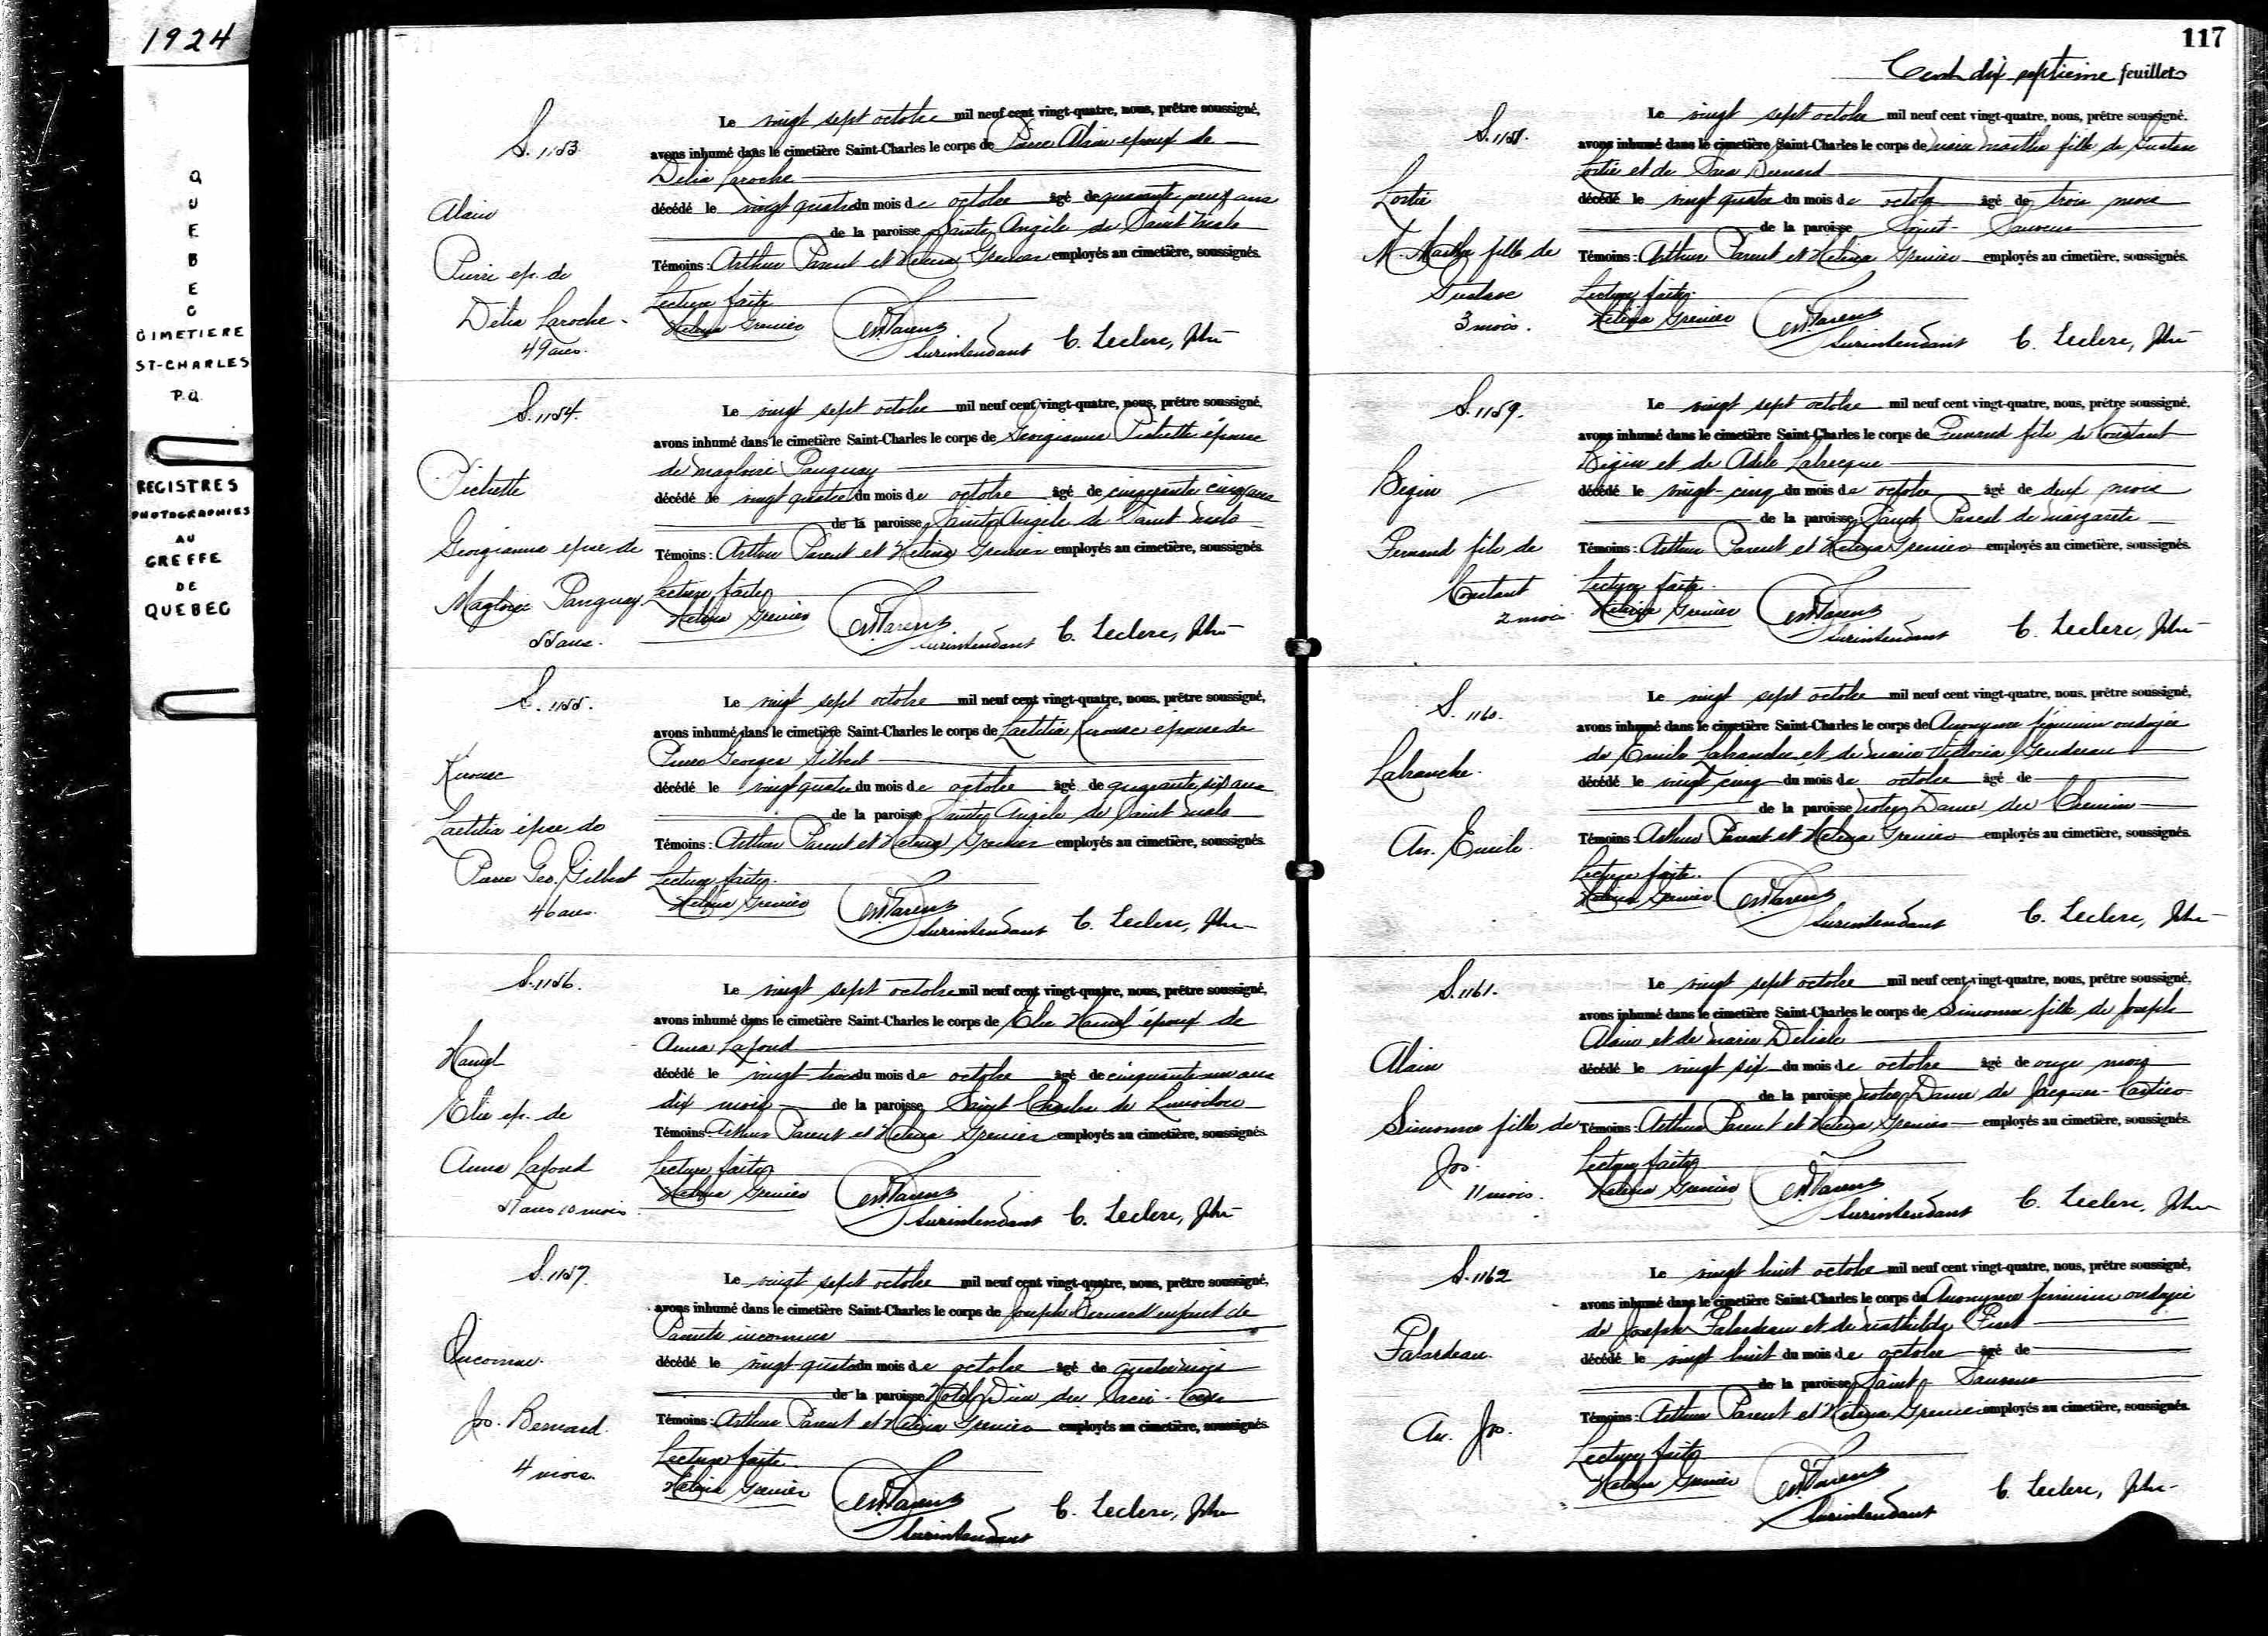 1924
QUEBEC
CIMETIERE
ST-CHARLES
P.Q.
REGISTRES
PHOTOGRAPHIES
AU
GREFFE
DE
QUEBEC
S. 1153.
Alain
Pierre ep. de
Délia Laroche
49 ans.
Le vingt sept octobre mil neuf cent vingt-quatre, nous, prêtre soussigné,
avons inhumé dans le cimetière Saint-Charles le corps de Pierre Alain époux de
Délia Laroche
décédé le vingt quatre du mois de octobre âgé de quarante neuf ans
de la paroisse Sainte Angèle de Saint Malo
Témoins : Arthur Parent et Helena Grenier employés au cimetière, soussignés.
Lecture faite
Helena Grenier
Surintendant C. Leclerc, Ptre
S. 1154.
Pichette
Georgianna epse de
Magloire Panguay
55 ans.
Le vingt sept octobre mil neuf cent vingt-quatre, nous, prêtre soussigné,
avons inhumé dans le cimetière Saint-Charles le corps de Georgianna Pichette épouse
de Magloire Panguay
décédé le vingt quatre du mois de octobre âgé de cinquante cinq ans
de la paroisse Sainte Angèle de Saint Malo
Témoins : Arthur Parent et Helena Grenier employés au cimetière, soussignés.
Lecture faite
Helena Grenier
Surintendant C. Leclerc, Ptre
S. 1155.
Kirouac
Laetitia épse de
Pierre Geo. Gilbert
46 ans.
Le vingt sept octobre mil neuf cent vingt-quatre, nous, prêtre soussigné,
avons inhumé dans le cimetière Saint-Charles le corps de Laetitia Kirouac epouse de
Pierre Georges Gilbert
décédé le vingt quatre du mois de octobre âgé de quarante six ans
de la paroisse Sainte Angèle de Saint Malo
Témoins : Arthur Parent et Helena Grenier employés au cimetière, soussignés.
Lecture faite.
Helena Grenier
Surintendant C. Leclerc, Ptre
S. 1156.
Hamel
Elie ep. de
Anna Lafond
ans 10 mois.
Le vingt sept octobre mil neuf cent vingt-quatre, nous, prêtre soussigné,
avons inhumé dans le cimetière Saint-Charles le corps de Elie Hamel époux de
Anna Lafond
décédé le vingt trois du mois de octobre âgé de cinquante ans
dix mois de la paroisse Saint Charles de Limoilou
Témoins : Arthur Parent et Helena Grenier employés au cimetière, soussignés.
Lecture faite
Helena Grenier
Surintendant C. Leclerc, Ptre
S. 1157.
Inconnu.
Jos. Bernard.
4 mois.
Le vingt sept octobre mil neuf cent vingt-quatre, nous, prêtre soussigné,
avons inhumé dans le cimetière Saint-Charles le corps de Joseph Bernard enfant de
Parents inconnus
décédé le vingt-quatre du mois de octobre âgé de quatre mois
de la paroisse Hotel Dieu du Sacré-Coeur
Témoins : Arthur Parent et Helena Grenier employés au cimetière, soussignés.
Lecture faite.
Helena Grenier
Surintendant C. Leclerc, Ptre
117
Cent dix septieme feuillet
S. 1158.
Lortie
M. Marthe fille de
Gustave
3 mois.
Le vingt sept octobre mil neuf cent vingt-quatre, nous, prêtre soussigné,
avons inhumé dans le cimetière Saint-Charles le corps de Marie Marthe fille de Gustave
Lortie et de Bernard
décédé le vingt quatre du mois de octobre âgé de trois mois
de la paroisse Saint-Sauveur
Témoins : Arthur Parent et Helena Grenier employés au cimetière, soussignés.
Lecture faite.
Helena Grenier
Surintendant C. Leclerc, Ptre
S. 1159.
Bégin
Fernand fils de
Constant
2 mois
Le vingt sept octobre mil neuf cent vingt-quatre, nous, prêtre soussigné,
avons inhumé dans le cimetière Saint-Charles le corps de Fernand fils de Constant
Bégin et de Adèle Labrecque
décédé le vingt-cinq du mois de octobre âgé de deux mois
de la paroisse Saint Pascal de Maizerets
Témoins : Arthur Parent et Helena Grenier employés au cimetière, soussignés.
Lecture faite.
Helena Grenier
Surintendant C. Leclerc, Ptre
S. 1160.
Labranche.
An. Emile.
Le vingt sept octobre mil neuf cent vingt-quatre, nous, prêtre soussigné,
avons inhumé dans le cimetière Saint-Charles le corps de Anonyme féminin ondoyée
de Emile Labranche et de Marie Victoria Gendreau
décédé le vingt cinq du mois de octobre âgé de
de la paroisse Notre Dame du Chemin
Témoins : Arthur Parent et Helena Grenier employés au cimetière, soussignés.
Lecture faite.
Helena Grenier
Surintendant C. Leclerc, Ptre
S. 1161.
Alain
Simonne fille de
Jos.
11 mois.
Le vingt sept octobre mil neuf cent vingt-quatre, nous, prêtre soussigné,
avons inhumé dans le cimetière Saint-Charles le corps de Simonne fille de Joseph
Alain et de Marie Delisle
décédé le vingt six du mois de octobre âgé de onze mois
de la paroisse Notre Dame de Jacques-Cartier
Témoins : Arthur Parent et Helena Grenier employés au cimetière, soussignés.
Lecture faite
Helena Grenier
Surintendant C. Leclerc, Ptre
S. 1162
Palardeau.
An. Jos.
Le vingt huit octobre mil neuf cent vingt-quatre, nous, prêtre soussigné,
avons inhumé dans le cimetière Saint-Charles le corps de Anonyme féminin ondoyée
de Joseph Palardeau et de Mathilda
décédé le vingt huit du mois de octobre âgé de
de la paroisse Saint Sauveur
Témoins : Arthur Parent et Helena Grenier employés au cimetière, soussignés.
Lecture faite
Helena Grenier
Surintendant C. Leclerc, Ptre